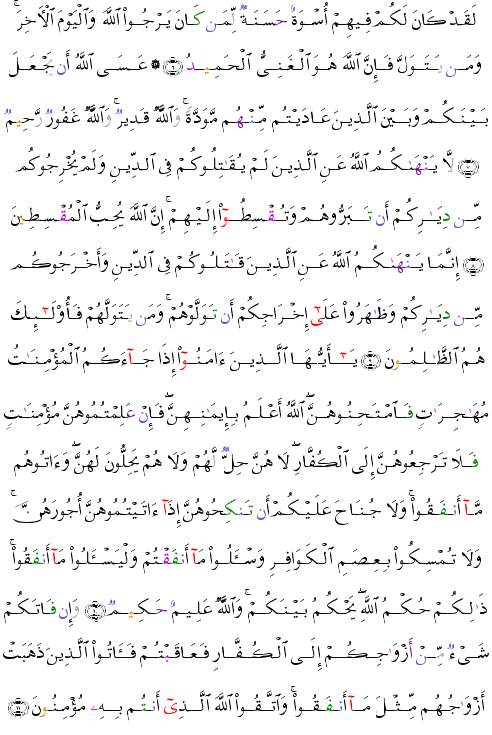 لَقَدۡ كَانَ لَكُمۡ فِيهِمۡ أُسۡوَةٌ حَسَنَةٞ لِّمَن كَانَ يَرۡجُواْ ٱللَّهَ وَٱلۡيَوۡمَ ٱلۡأٓخِرَۚ
وَمَن يَتَوَلَّ فَإِنَّ ٱللَّهَ هُوَ ٱلۡغَنِيُّ ٱلۡحَمِيدُ ٦ ۞ عَسَى ٱللَّهُ أَن يَجۡعَلَ
بَيۡنَكُمۡ وَبَيۡنَ ٱلَّذِينَ عَادَيۡتُم مِّنۡهُم مَّوَدَّةٗۚ وَٱللَّهُ قَدِيرٞۚ وَٱللَّهُ غَفُورٞ رَّحِيمٞ
٧ لَّا يَنۡهَىٰكُمُ ٱللَّهُ عَنِ ٱلَّذِينَ لَمۡ يُقَٰتِلُوكُمۡ فِي ٱلدِّينِ وَلَمۡ يُخۡرِجُوكُم
مِّن دِيَٰرِكُمۡ أَن تَبَرُّوهُمۡ وَتُقۡسِطُوٓاْ إِلَيۡهِمۡۚ إِنَّ ٱللَّهَ يُحِبُّ ٱلۡمُقۡسِطِينَ
٨ إِنَّمَا يَنۡهَىٰكُمُ ٱللَّهُ عَنِ ٱلَّذِينَ قَٰتَلُوكُمۡ فِي ٱلدِّينِ وَأَخۡرَجُوكُم
مِّن دِيَٰرِكُمۡ وَظَٰهَرُواْ عَلَىٰٓ إِخۡرَاجِكُمۡ أَن تَوَلَّوۡهُمۡۚ وَمَن يَتَوَلَّهُمۡ فَأُوْلَٰٓئِكَ
هُمُ ٱلظَّٰلِمُونَ ٩ يَٰٓأَيُّهَا ٱلَّذِينَ ءَامَنُوٓاْ إِذَا جَآءَكُمُ ٱلۡمُؤۡمِنَٰتُ
مُهَٰجِرَٰتٖ فَٱمۡتَحِنُوهُنَّۖ ٱللَّهُ أَعۡلَمُ بِإِيمَٰنِهِنَّۖ فَإِنۡ عَلِمۡتُمُوهُنَّ مُؤۡمِنَٰتٖ
فَلَا تَرۡجِعُوهُنَّ إِلَى ٱلۡكُفَّارِۖ لَا هُنَّ حِلّٞ لَّهُمۡ وَلَا هُمۡ يَحِلُّونَ لَهُنَّۖ وَءَاتُوهُم
مَّآ أَنفَقُواْۚ وَلَا جُنَاحَ عَلَيۡكُمۡ أَن تَنكِحُوهُنَّ إِذَآ ءَاتَيۡتُمُوهُنَّ أُجُورَهُنَّۚ
وَلَا تُمۡسِكُواْ بِعِصَمِ ٱلۡكَوَافِرِ وَسۡـَٔلُواْ مَآ أَنفَقۡتُمۡ وَلۡيَسۡـَٔلُواْ مَآ أَنفَقُواْۚ
ذَٰلِكُمۡ حُكۡمُ ٱللَّهِ يَحۡكُمُ بَيۡنَكُمۡۖ وَٱللَّهُ عَلِيمٌ حَكِيمٞ ١٠ وَإِن فَاتَكُمۡ
شَيۡءٞ مِّنۡ أَزۡوَٰجِكُمۡ إِلَى ٱلۡكُفَّارِ فَعَاقَبۡتُمۡ فَـَٔاتُواْ ٱلَّذِينَ ذَهَبَتۡ
أَزۡوَٰجُهُم مِّثۡلَ مَآ أَنفَقُواْۚ وَٱتَّقُواْ ٱللَّهَ ٱلَّذِيٓ أَنتُم بِهِۦ مُؤۡمِنُونَ ١١